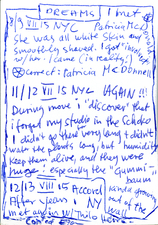 DREAMS I met
8/9 VIII 15 NYC Patricia McD
She was all white skin and
smoothly shaved. I got involved
with her. I came (in reality)
correct: Patricia McDonnell
11/12 VIII 15 NYC AGAIN!!!
During move i "discover" that
I forgot my studio in the
i didn't go there very long + didn't
water the plants long, but humidity
keep them alive, and they were
huge, especially the "Gummi-
baum
kinda growing
out of the
wall
12/13 VIII 15 Accord
After years i NY
met again w/ Thilo